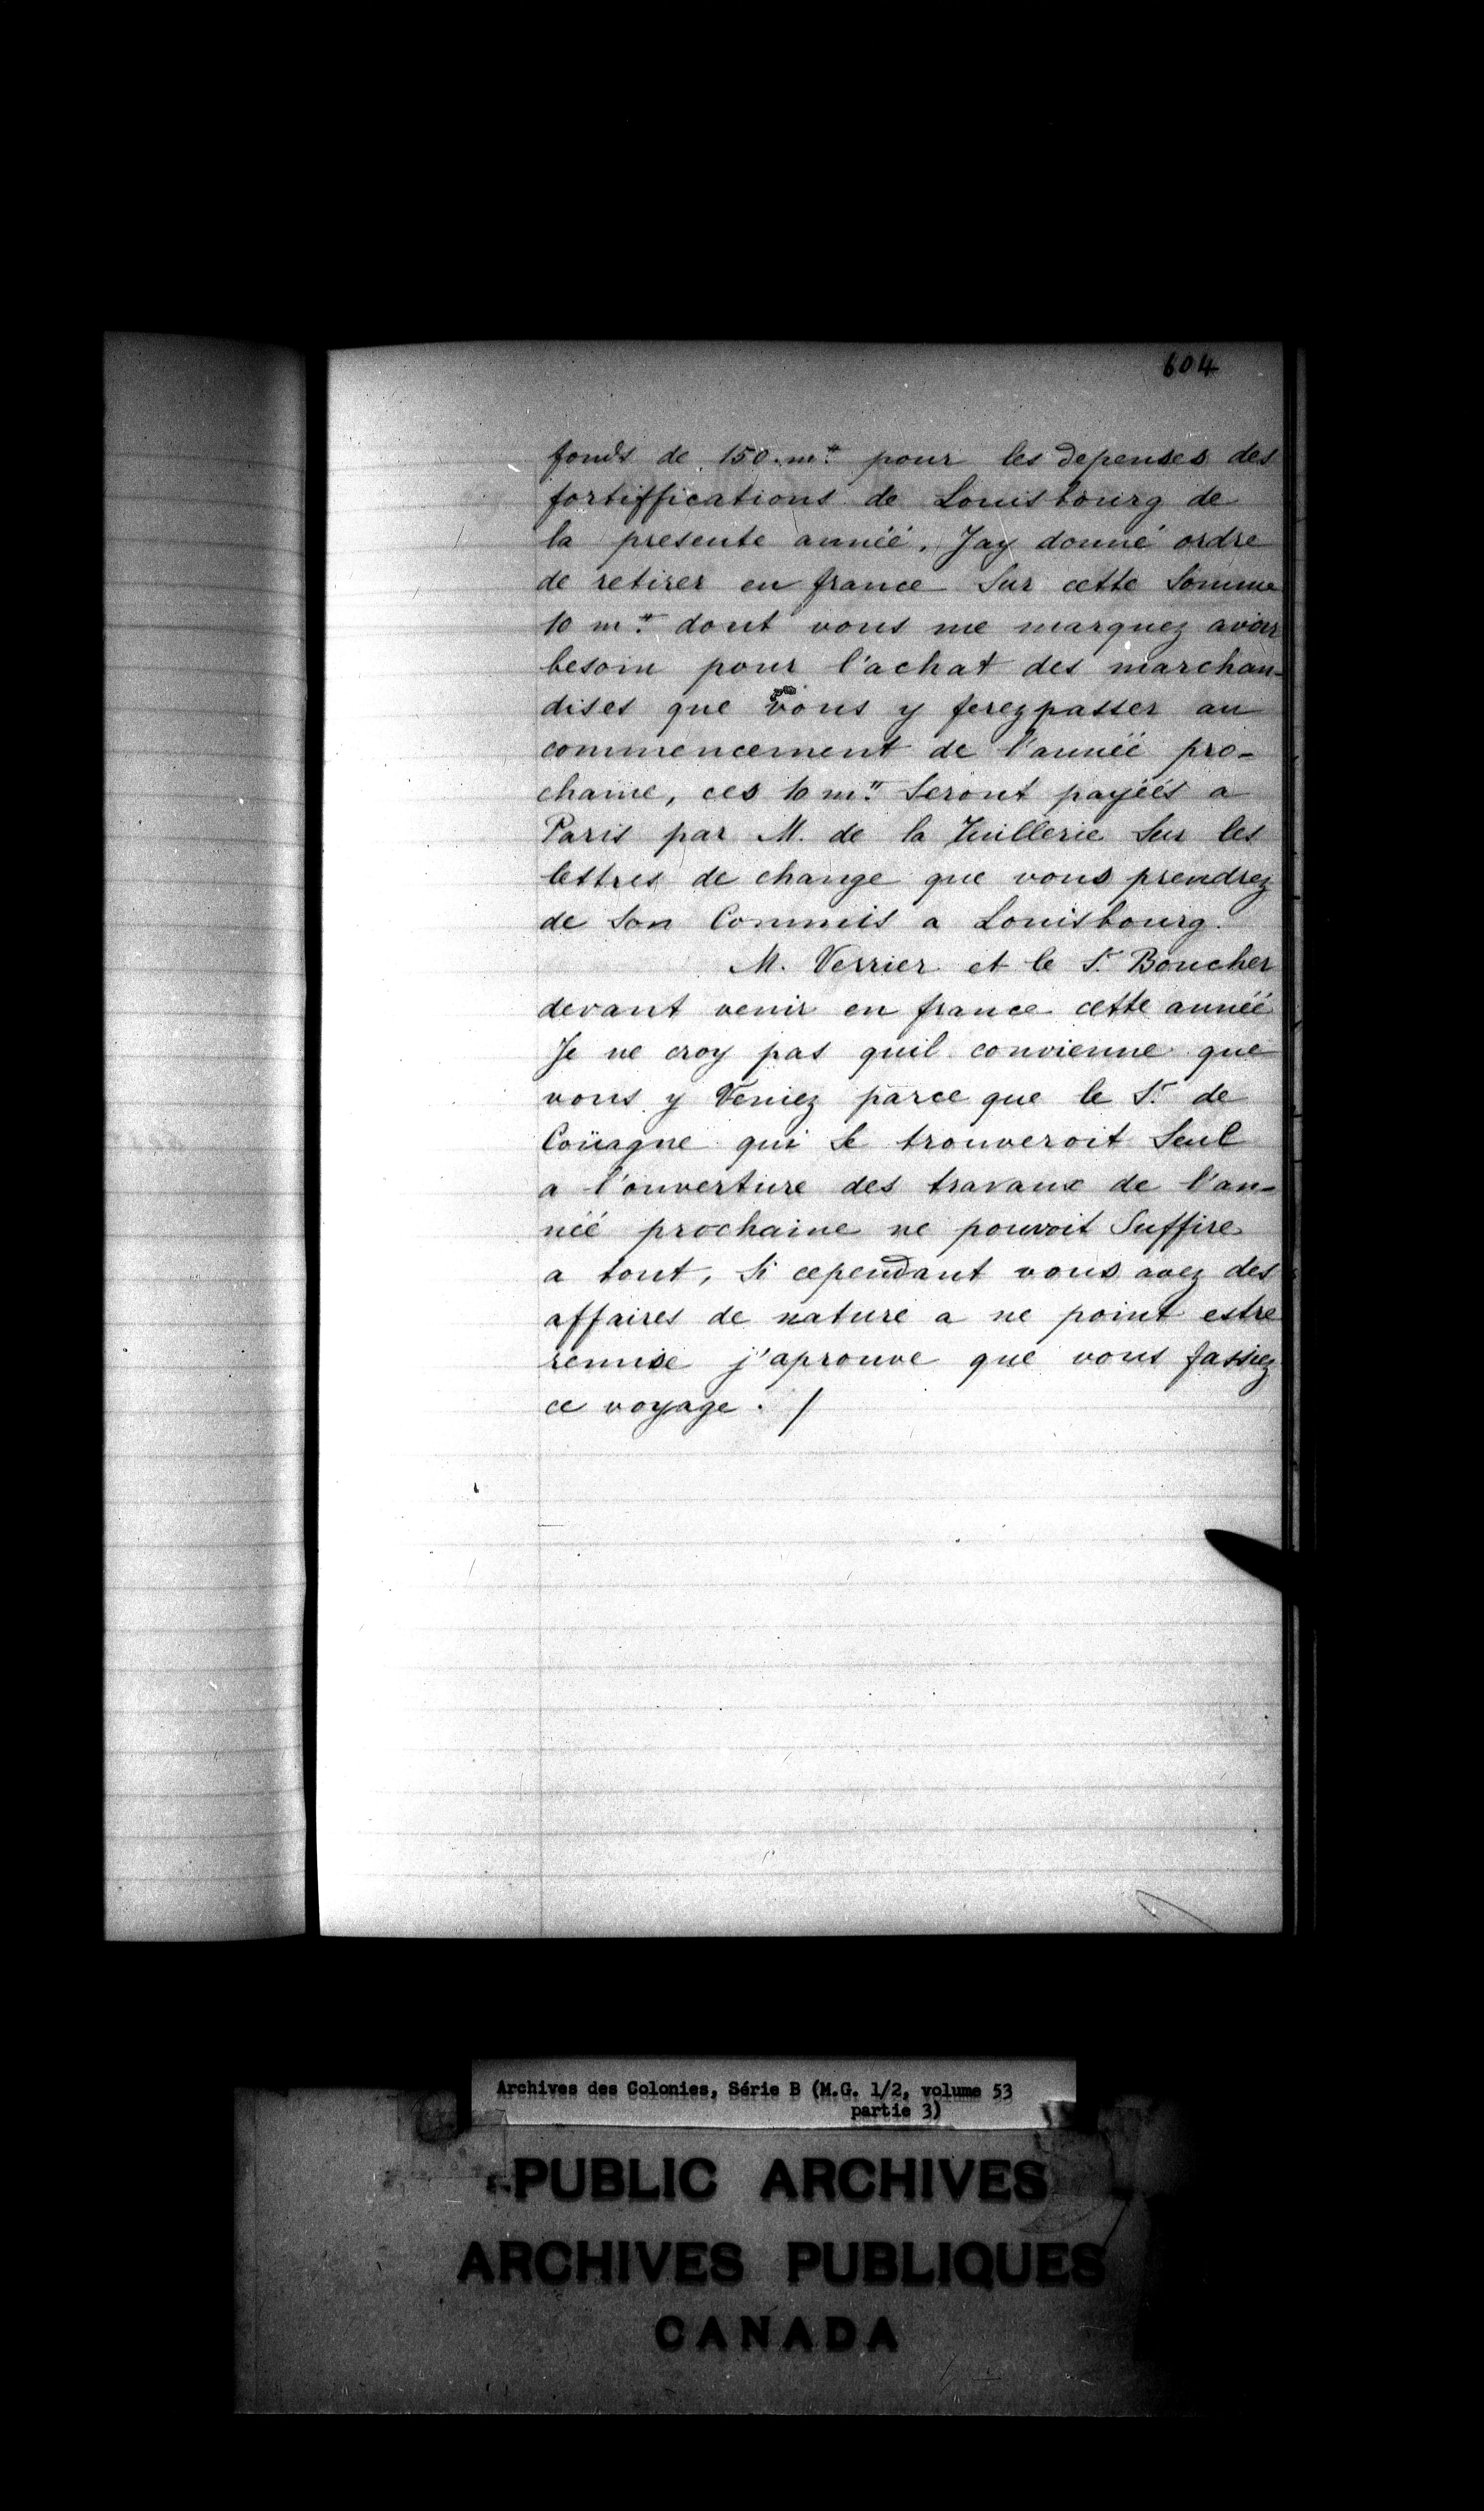 604
fonds de 150.m# pour les depenses des
fortiffications de Louisbourg de
la presente année. Jay donné ordre
de retirer en france Sur cette Somme
10 m# dont vous me marquez avoir
besoin pour l'achat des marchan-
dises que vous y ferez passer au
commencement de l'année pro-
chaine, ces 10 m# Seront payéés a
Paris par M. de la Tuillerie Sur les
lettres de change que vous prendrez
de Son Commis a Louisbourg.
M. Verrier et le Sr. Boucher
devant venir en france cette année
Je ne croy pas quil convienne que
vous y Veniez parce que le Sr. de
Coüagne qui Se trouveroit Seul
a l'ouverture des travaux de l'an-
néé prochaine ne pouvoit Suffire
a tout, Si cependant vous avez des
affaires de nature a ne point estre
remise j'aprouve que vous fassiez
ce voyage. /
Archives des Colonies, Série B (M.G. 1/2, volume 53
partie 3)
PUBLIC ARCHIVES
ARCHIVES PUBLIQUES
CANADA